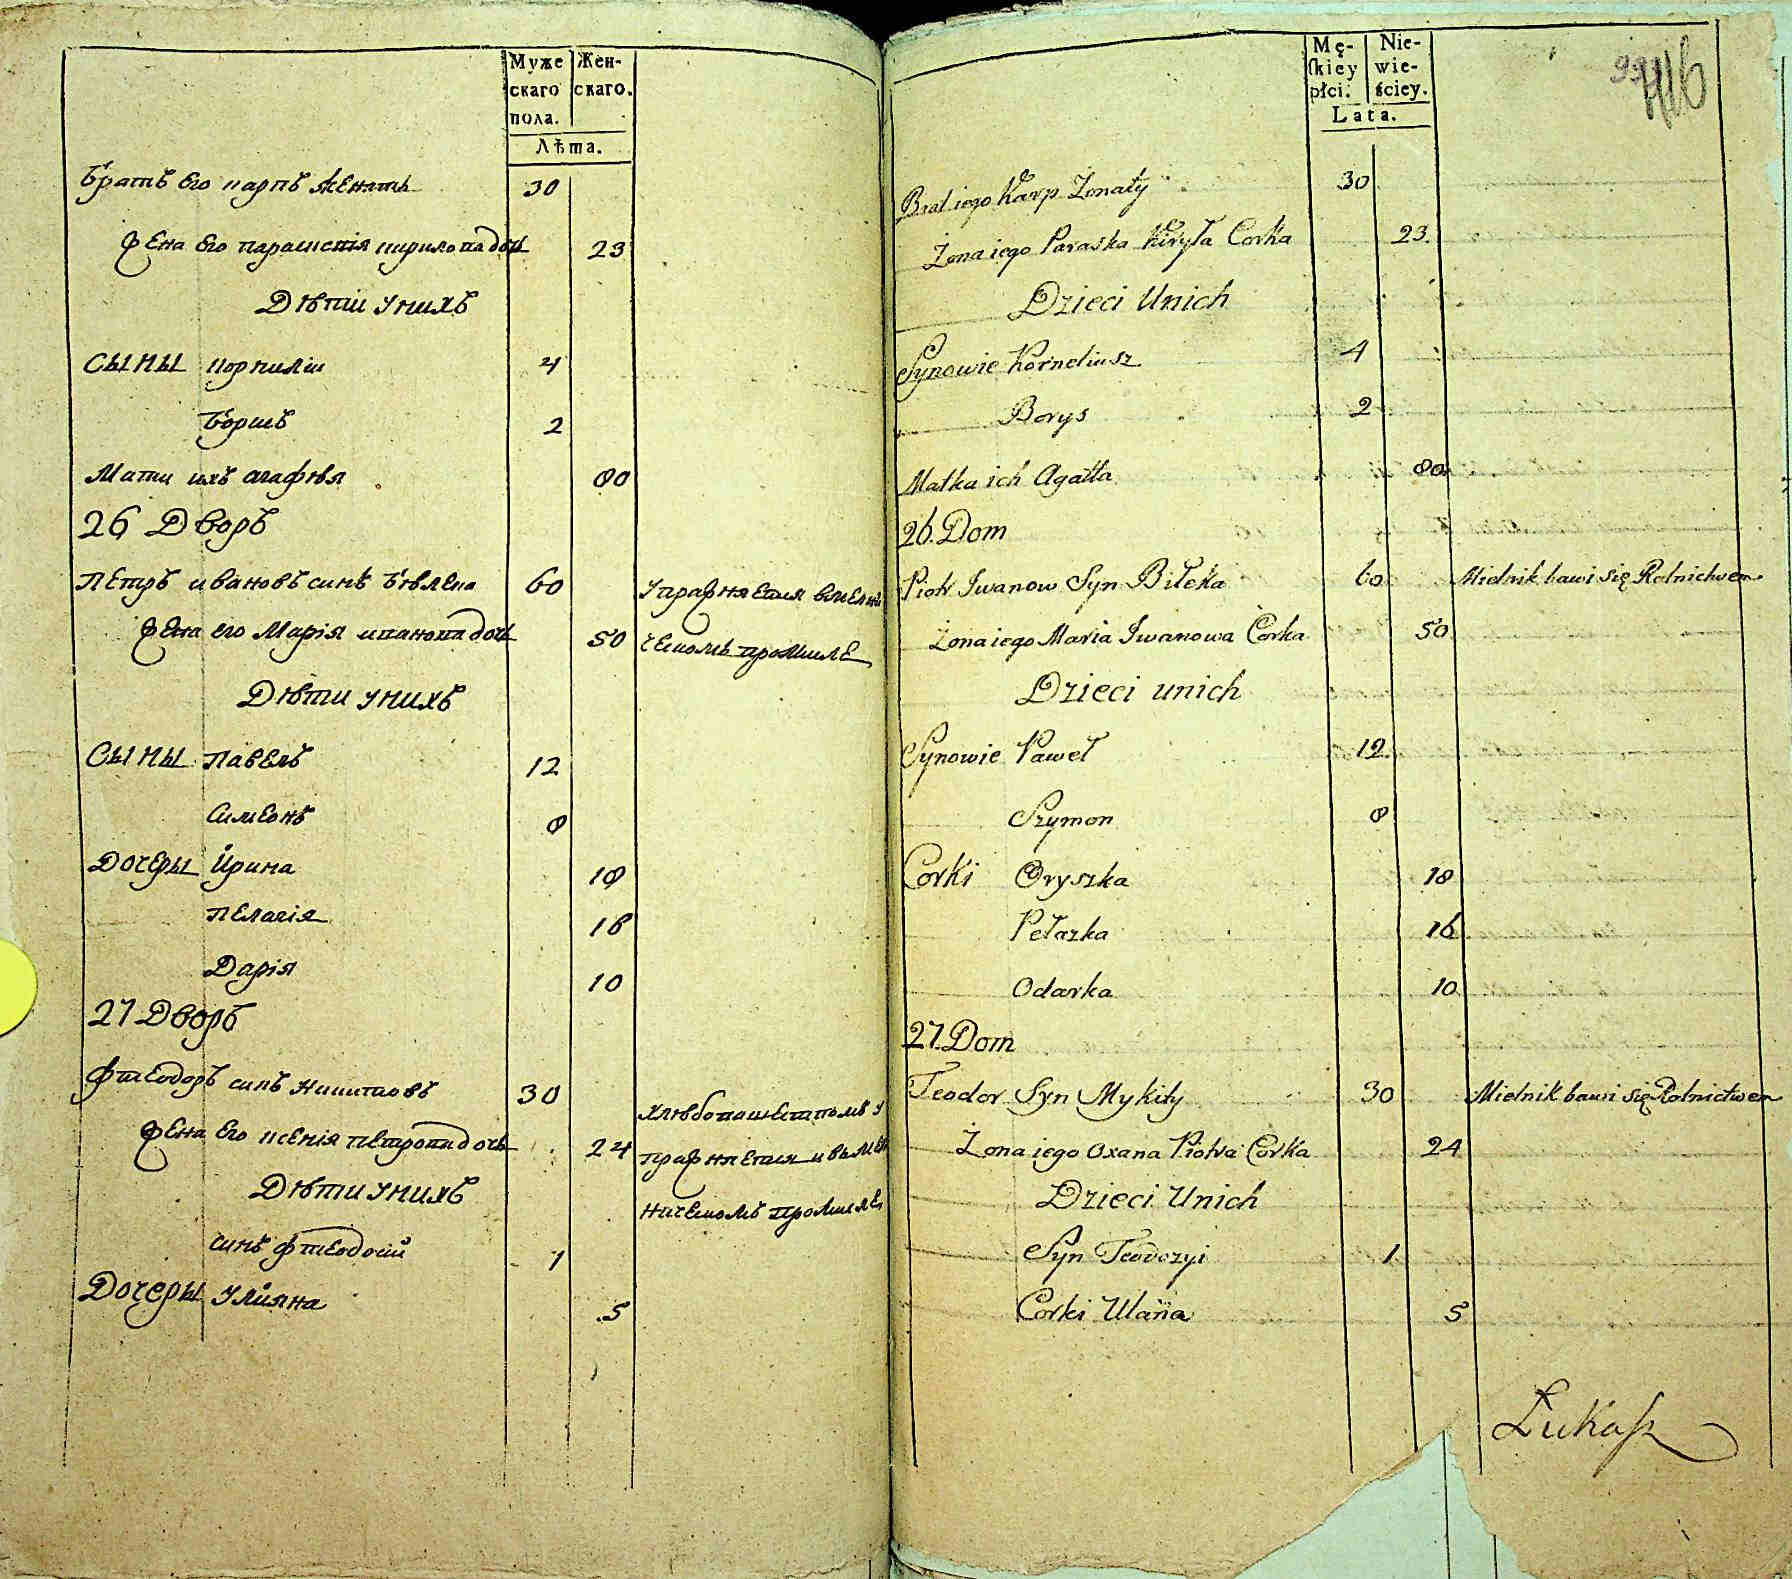 Муже Жен-
скаго скаго.
пола.
Лѣта.
Братъ его карпъ женатъ 30
жена его параскевія кирилова дочь 23
Дѣти у нихъ
СЫНЫ корнилій 4
борисъ 2
Мати ихъ агафѣя 80
26 Дворъ
Петръ ивановъ синъ бѣлека 60 упражняется
жена его Марія иванова дочь 50 промислѣ
Дѣти у нихъ
СЫНЫ павелъ 12
симеонъ 8
Дочеры ирина 18
пелагія 16
Дарія 10
27 Дворъ
фтеодоръ синъ никитовъ 30 хлѣбопашествомъ у
жена его ксенія петрова дочь 24 пражняется и
Дѣти у нихъ
синъ фтеодосій 1
Дочеры уліяна 5
Mę- Nie-
skiey wie-
płci. ściey.
Lata.
416
Brat iego Karp Zonaty 30
Żona iego Paraska Kiryła Corka 23.
Dzieci Unich
Synowie Korneliusz 4
Borys 2
Matka ich Agatta 80
26. Dom
Piotr Iwanow Syn Biłeka 60 Mielnik bawi się Rolnictwem
Żona iego Maria Iwanowa Corka 50
Dzieci unich
Synowie Paweł 12
Szymon 8
Corki Oryszka 18
Pełazka 16
Odarka 10
27. Dom
Teodor Syn Mykity 30 Mielnik bawi się Rolnictwem
Żona iego Oxana Piotra Corka 24
Dzieci Unich
Syn Teodozyi 1
Corki Ulana 5
Łukasz